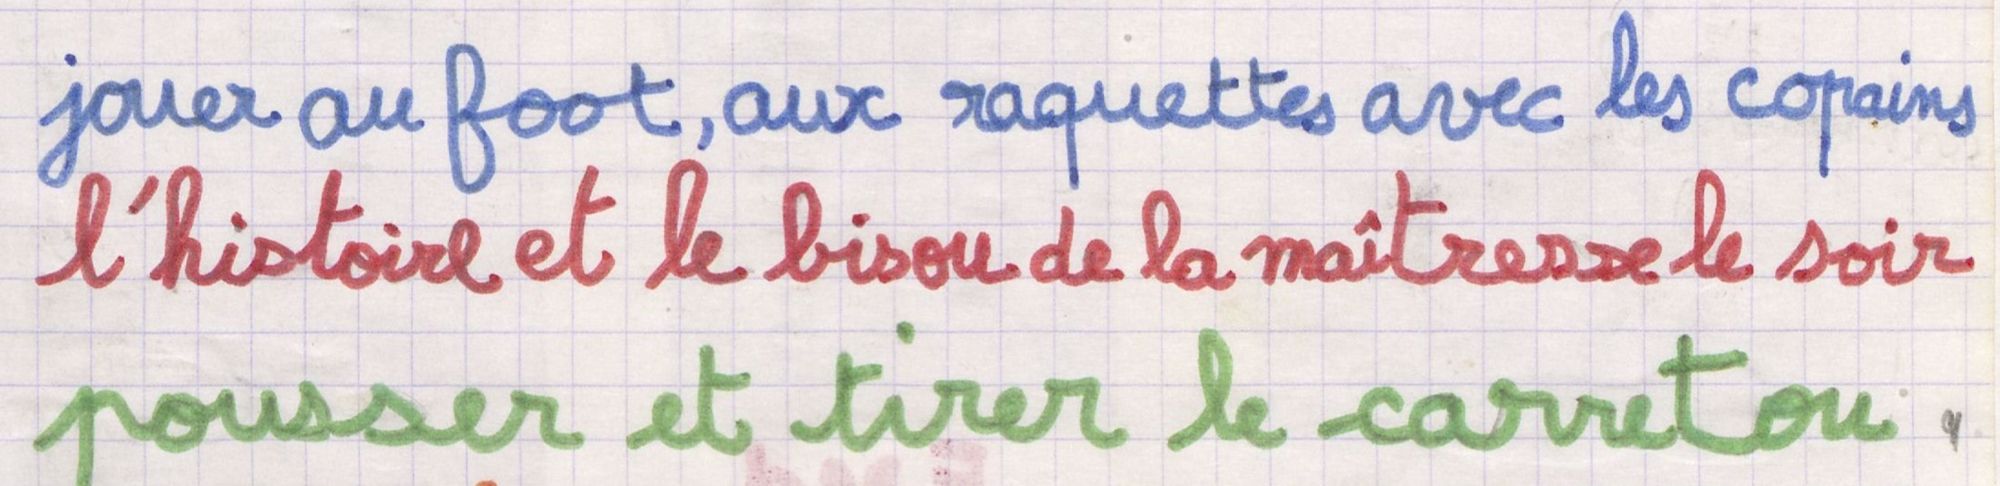 jouer au foot, aux raquettes avec les copains
l'histoire et le bisou de la maîtresse le soir
pousser et tirer le carretou